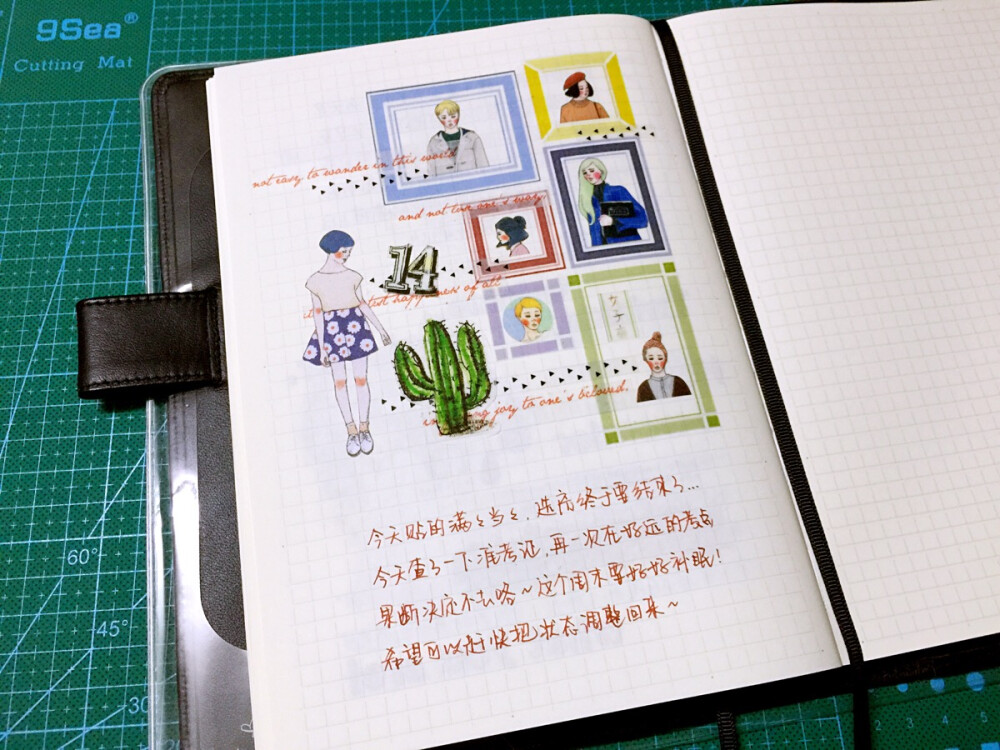 9Sea®
Cutting Mat
not easy to wander in this world
and not lose one's way
14
happiness of all
joy to one's beloved.
今天贴的满々当々,终于要结束了...
今天查了一下准考证,再一次在好远的考点
果断决定不去咯~这个周末要好好补眠!
希望可以赶快把状态调整回来~
60°
45°
30